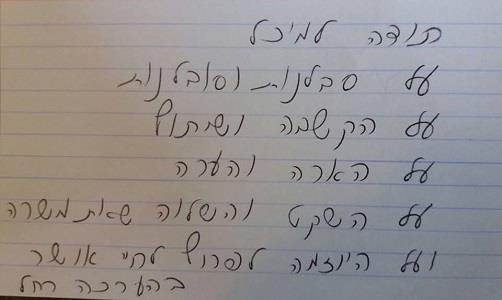 תודה למיכל
על סבלנות וסובלנות
על הקשבה ושיתוף
על הארה והערה
על השקט והשלוה שאת משרה
ועל היוזמה לפרוץ לחיי אושר
בהערכה רחל